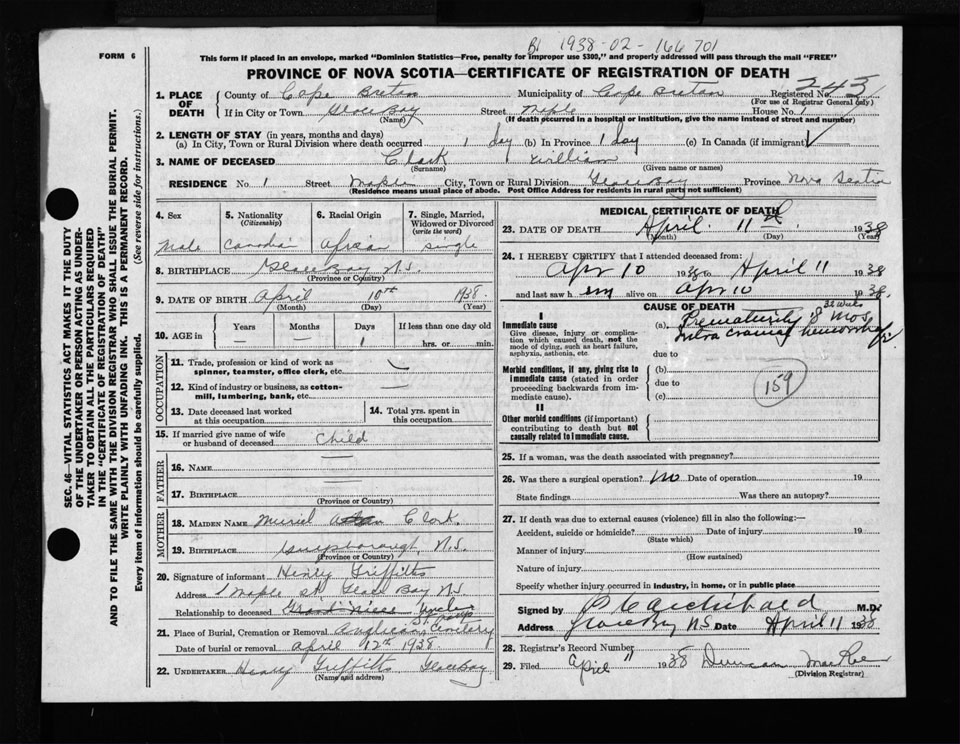 B 1938-02-166701
FORM 6
This form if placed in an envelope, marked "Dominion Statistics—Free, penalty for improper use $300," and properly addressed will pass through the mail "FREE"
PROVINCE OF NOVA SCOTIA—CERTIFICATE OF REGISTRATION OF DEATH
1. PLACE OF DEATH
County of Cape Breton Municipality of Cape Breton Registered No. 243
(For use of Registrar General only)
If in City or Town Glace Bay Street Maple House No. 1
(Name) (If death occurred in a hospital or institution, give the name instead of street and number)
2. LENGTH OF STAY (in years, months and days)
(a) In City, Town or Rural Division where death occurred 1 day (b) In Province 1 day (c) In Canada (if immigrant) ✓
3. NAME OF DECEASED Clark William
(Surname) (Given name or names)
RESIDENCE No. 1 Street Maple City, Town or Rural Division Glace Bay Province Nova Scotia
(Residence means usual place of abode. Post Office Address for residents in rural parts not sufficient)
SEC. 46—VITAL STATISTICS ACT MAKES IT THE DUTY
OF THE UNDERTAKER OR PERSON ACTING AS UNDER-
TAKER TO OBTAIN ALL THE PARTICULARS REQUIRED
IN THE "CERTIFICATE OF REGISTRATION OF DEATH"
AND TO FILE THE SAME WITH THE DIVISION REGISTRAR WHO SHALL ISSUE THE BURIAL PERMIT.
WRITE PLAINLY WITH UNFADING INK. THIS IS A PERMANENT RECORD.
Every item of information should be carefully supplied. (See reverse side for instructions.)
4. Sex
Male
5. Nationality
(Citizenship)
Canadian
6. Racial Origin
African
7. Single, Married, Widowed or Divorced
(write the word)
Single
8. BIRTHPLACE Glace Bay N.S.
(Province or Country)
9. DATE OF BIRTH April 10th 1938
(Month) (Day) (Year)
10. AGE in Years Months Days If less than one day old
— — 1 hrs. or min.
OCCUPATION
11. Trade, profession or kind of work as spinner, teamster, office clerk, etc.
12. Kind of industry or business, as cotton-mill, lumbering, bank, etc.
13. Date deceased last worked at this occupation
14. Total yrs. spent in this occupation
15. If married give name of wife or husband of deceased Child
FATHER
16. NAME
17. BIRTHPLACE
(Province or Country)
MOTHER
18. MAIDEN NAME Muriel Clark.
19. BIRTHPLACE Guysborough, N.S.
(Province or Country)
20. Signature of informant Henry Griffitts
Address 1 Maple St. Glace Bay N.S.
Relationship to deceased Grand Niece Uncle
21. Place of Burial, Cremation or Removal Anglican Cemetery
Date of burial or removal April 12th 1938.
22. UNDERTAKER Henry Griffitts Glace Bay
(Name and address)
MEDICAL CERTIFICATE OF DEATH
23. DATE OF DEATH April 11th 1938
(Month) (Day) (Year)
24. I HEREBY CERTIFY that I attended deceased from:
Apr 10 1938 to April 11 1938
and last saw him alive on Apr 10 1938.
CAUSE OF DEATH
I
Immediate cause
Give disease, injury or complication which caused death, not the mode of dying, such as heart failure, asphyxia, asthenia, etc.
(a) Prematurity 8 Mos. 32 wks
Intra cranial hemorrhage
due to
Morbid conditions, if any, giving rise to immediate cause (stated in order proceeding backwards from immediate cause).
(b)
due to
(c)
159
II
Other morbid conditions (if important) contributing to death but not causally related to immediate cause.
25. If a woman, was the death associated with pregnancy?
26. Was there a surgical operation? No Date of operation 19
State findings Was there an autopsy?
27. If death was due to external causes (violence) fill in also the following:—
Accident, suicide or homicide? Date of injury 19
(State which)
Manner of injury
(How sustained)
Nature of injury
Specify whether injury occurred in industry, in home, or in public place
Signed by Archibald M.D.
Address Glace Bay N.S. Date April 11 1938
28. Registrar's Record Number
29. Filed April 11 1938 Duncan MacRae
(Division Registrar)